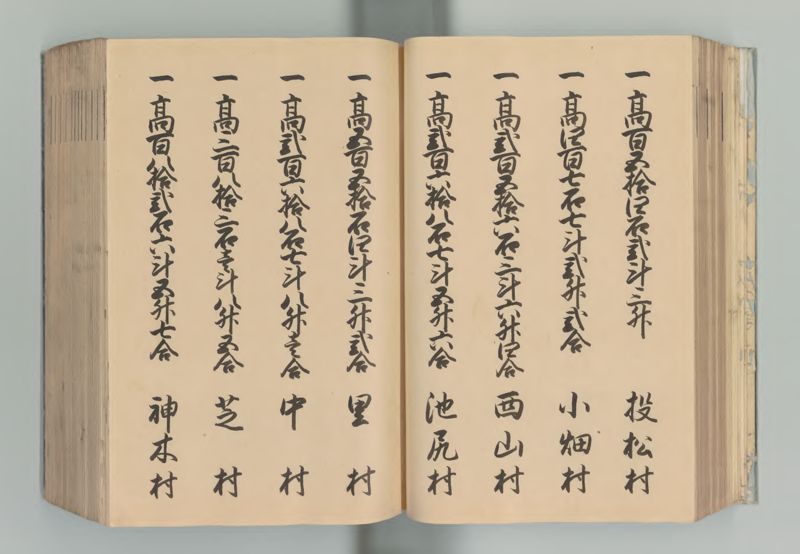 一 高百五拾四石弐斗三升 投松村
一 高四百七石七斗弐升弐合 小畑村
一 高弐百五拾六石二斗六升四合 西山村
一 高弐百六拾八石七斗五升六合 池尻村
一 高五百五拾石四斗三升弐合 里村
一 高弐百六拾八石七斗八升壱合 中村
一 高三百八拾二石壱斗八升五合 芝村
一 高百八拾弐石六斗五升七合 神木村